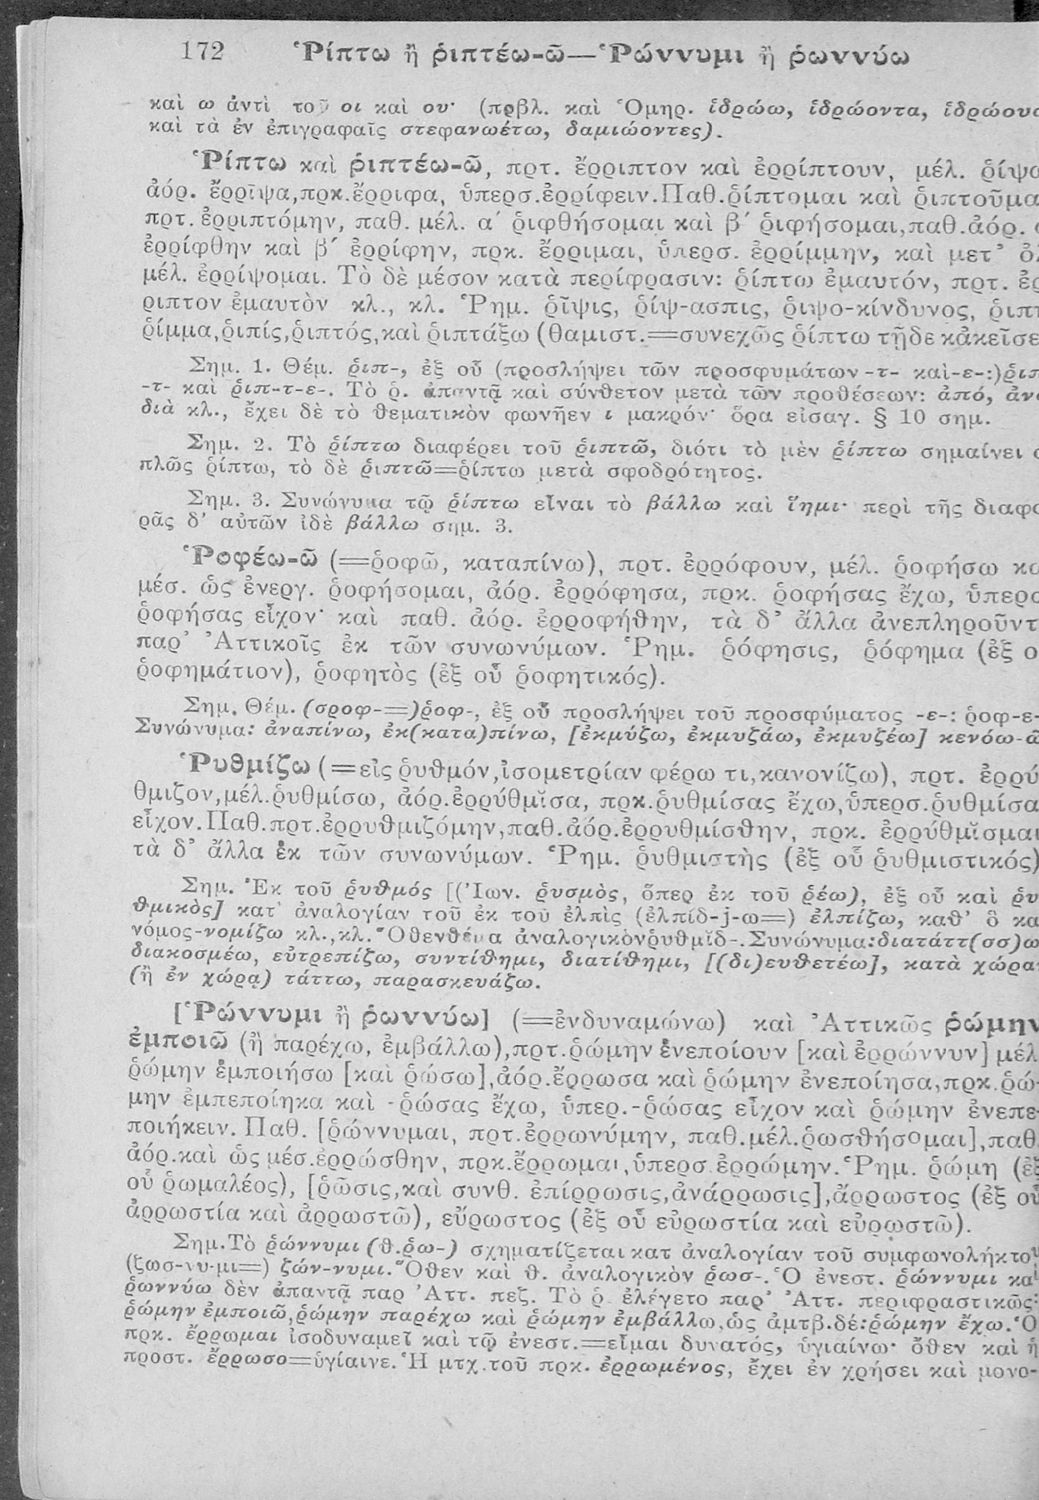 172 Ῥίπτω ἢ ῥιπτέω-ῶ—Ῥώννυμι ἢ ῥωννύω
καὶ ω ἀντὶ τοῦ οι καὶ ου· (πρβλ. καὶ Ὁμηρ. ἱδρώω, ἱδρώοντα, ἱδρώουσ
καὶ τὰ ἐν ἐπιγραφαῖς στεφανωέτω, δαμιώοντες).
Ῥίπτω καὶ ῥιπτέω-ῶ, πρτ. ἔρριπτον καὶ ἐρρίπτουν, μέλ. ῥίψω
ἀόρ. ἔρρῖψα,πρκ.ἔρριφα, ὑπερσ.ἐρρίφειν.Παθ.ῥίπτομαι καὶ ῥιπτοῦμα
πρτ.ἐρριπτόμην, παθ. μέλ. α΄ ῥιφθήσομαι καὶ β΄ ῥιφήσομαι,παθ.ἀόρ.
ἐρρίφθην καὶ β΄ ἐρρίφην, πρκ. ἔρριμαι, ὑπερσ. ἐρρίμμην, καὶ μετ᾿ ὀλ
μέλ. ἐρρίψομαι. Τὸ δὲ μέσον κατὰ περίφρασιν: ῥίπτω ἐμαυτόν, πρτ. ἔρ
ριπτον ἐμαυτὸν κλ., κλ. Ῥημ. ῥῖψις, ῥίψ-ασπις, ῥιψο-κίνδυνος, ῥιπτ
ῥίμμα,ῥιπίς,ῥιπτός,καὶ ῥιπτάξω (θαμιστ.=συνεχῶς ῥίπτω τῇδε κἀκεῖσε
Σημ. 1. Θέμ. ῥιπ-, ἐξ οὗ (προσλήψει τῶν προσφυμάτων -τ- καὶ-ε-:)ῥιπ
-τ- καὶ ῥιπ-τ-ε-. Τὸ ῥ. ἀπαντᾷ καὶ σύνθετον μετὰ τῶν προθέσεων: ἀπό, ἀν
διὰ κλ., ἔχει δὲ τὸ θεματικὸν φωνῆεν ι μακρόν· ὅρα εἰσαγ. § 10 σημ.
Σημ. 2. Τὸ ῥίπτω διαφέρει τοῦ ῥιπτῶ, διότι τὸ μὲν ῥίπτω σημαίνει
πλῶς ῥίπτω, τὸ δὲ ῥιπτῶ=ῥίπτω μετὰ σφοδρότητος.
Σημ. 3. Συνώνυμα τῷ ῥίπτω εἶναι τὸ βάλλω καὶ ἵημι· περὶ τῆς διαφο
ρᾶς δ᾿ αὐτῶν ἰδὲ βάλλω σημ. 3.
Ῥοφέω-ῶ (=ῥοφῶ, καταπίνω), πρτ. ἐρρόφουν, μέλ. ῥοφήσω κα
μέσ. ὡς ἐνεργ. ῥοφήσομαι, ἀόρ. ἐρρόφησα, πρκ. ῥοφήσας ἔχω, ὑπερσ
ῥοφήσας εἶχον· καὶ παθ. ἀόρ. ἐρροφήθην, τὰ δ᾿ ἄλλα ἀνεπληροῦντ
παρ᾿ Ἀττικοῖς ἐκ τῶν συνωνύμων. Ῥημ. ῥόφησις, ῥόφημα (ἐξ ο
ῥοφημάτιον), ῥοφητὸς (ἐξ οὗ ῥοφητικός).
Σημ. Θέμ. (σροφ-=)ῥοφ-, ἐξ οὗ προσλήψει τοῦ προσφύματος -ε-: ῥοφ-ε-
Συνώνυμα: ἀναπίνω, ἐκ(κατα)πίνω, [ἐκμύζω, ἐκμυζάω, ἐκμυζέω] κενόω-ῶ
Ῥυθμίζω (=εἰς ῥυθμόν,ἰσομετρίαν φέρω τι,κανονίζω), πρτ. ἐρρύ
θμιζον,μέλ.ῥυθμίσω, ἀόρ.ἐρρύθμῐσα, πρκ.ῥυθμίσας ἔχω,ὑπερσ.ῥυθμίσα
εἶχον.Παθ.πρτ.ἐρρυθμιζόμην,παθ.ἀόρ.ἐρρυθμίσθην, πρκ. ἐρρύθμῐσμαι
τὰ δ᾿ ἄλλα ἐκ τῶν συνωνύμων. Ῥημ. ῥυθμιστὴς (ἐξ οὗ ῥυθμιστικός)
Σημ. Ἐκ τοῦ ῥυθμός [(Ἰων. ῥυσμὸς, ὅπερ ἐκ τοῦ ῥέω), ἐξ οὗ καὶ ῥυ
θμικὸς] κατ᾿ ἀναλογίαν τοῦ ἐκ τοῦ ἐλπὶς (ἐλπίδ-j-ω=) ἐλπίζω, καθ᾿ ὃ κα
νόμος-νομίζω κλ.,κλ. Ὅθεν θέμα ἀναλογικὸν ῥυθμῐδ-.Συνώνυμα:διατάττ(σσ)ω
διακοσμέω, εὐτρεπίζω, συντίθημι, διατίθημι, [(δι)ευθετέω], κατὰ χώρα
(ἢ ἐν χώρᾳ) τάττω, παρασκευάζω.
[Ῥώννυμι ἢ ῥωννύω] (=ἐνδυναμώνω) καὶ Ἀττικῶς ῥώμην
ἐμποιῶ (ἢ παρέχω, ἐμβάλλω),πρτ.ῥώμην ἐνεποίουν [καὶ ἐρρώννυν] μέλ
ῥώμην ἐμποιήσω [καὶ ῥώσω],ἀόρ.ἔρρωσα καὶ ῥώμην ἐνεποίησα,πρκ.ῥώ-
μην ἐμπεποίηκα καὶ -ῥώσας ἔχω, ὑπερ.-ῥώσας εἶχον καὶ ῥώμην ἐνεπε-
ποιήκειν. Παθ. [ῥώννυμαι, πρτ.ἐρρωνύμην, παθ.μέλ.ῥωσθήσομαι],παθ
ἀόρ.καὶ ὡς μέσ.ἐρρώσθην, πρκ.ἔρρωμαι,ὑπερσ.ἐρρώμην. Ῥημ. ῥώμη (ἐξ
οὗ ῥωμαλέος), [ῥῶσις,καὶ συνθ. ἐπίρρωσις,ἀνάρρωσις],ἄρρωστος (ἐξ οὗ
ἀρρωστία καὶ ἀρρωστῶ), εὔρωστος (ἐξ οὗ εὐρωστία καὶ εὐρωστῶ).
Σημ.Τὸ ῥώννυμι (θ.ῥω-) σχηματίζεται κατ ἀναλογίαν τοῦ συμφωνολήκτου
(ζωσ-νυ-μι=) ζών-νυμι. Ὅθεν καὶ θ. ἀναλογικὸν ῥωσ-. Ὁ ἐνεστ. ῥώννυμι καὶ
ῥωννύω δὲν ἀπαντᾷ παρ Ἀττ. πεζ. Τὸ ῥ. ἐλέγετο παρ᾿ Ἀττ. περιφραστικῶς:
ῥώμην ἐμποιῶ,ῥώμην παρέχω καὶ ῥώμην ἐμβάλλω,ὡς ἀμτβ.δέ:ῥώμην ἔχω. Ὁ
πρκ. ἔρρωμαι ἰσοδυναμεῖ καὶ τῷ ἐνεστ.=εἶμαι δυνατός, ὑγιαίνω· ὅθεν καὶ ἡ
προστ. ἔρρωσο=ὑγίαινε. Ἡ μτχ.τοῦ πρκ. ἐρρωμένος, ἔχει ἐν χρήσει καὶ μονο-